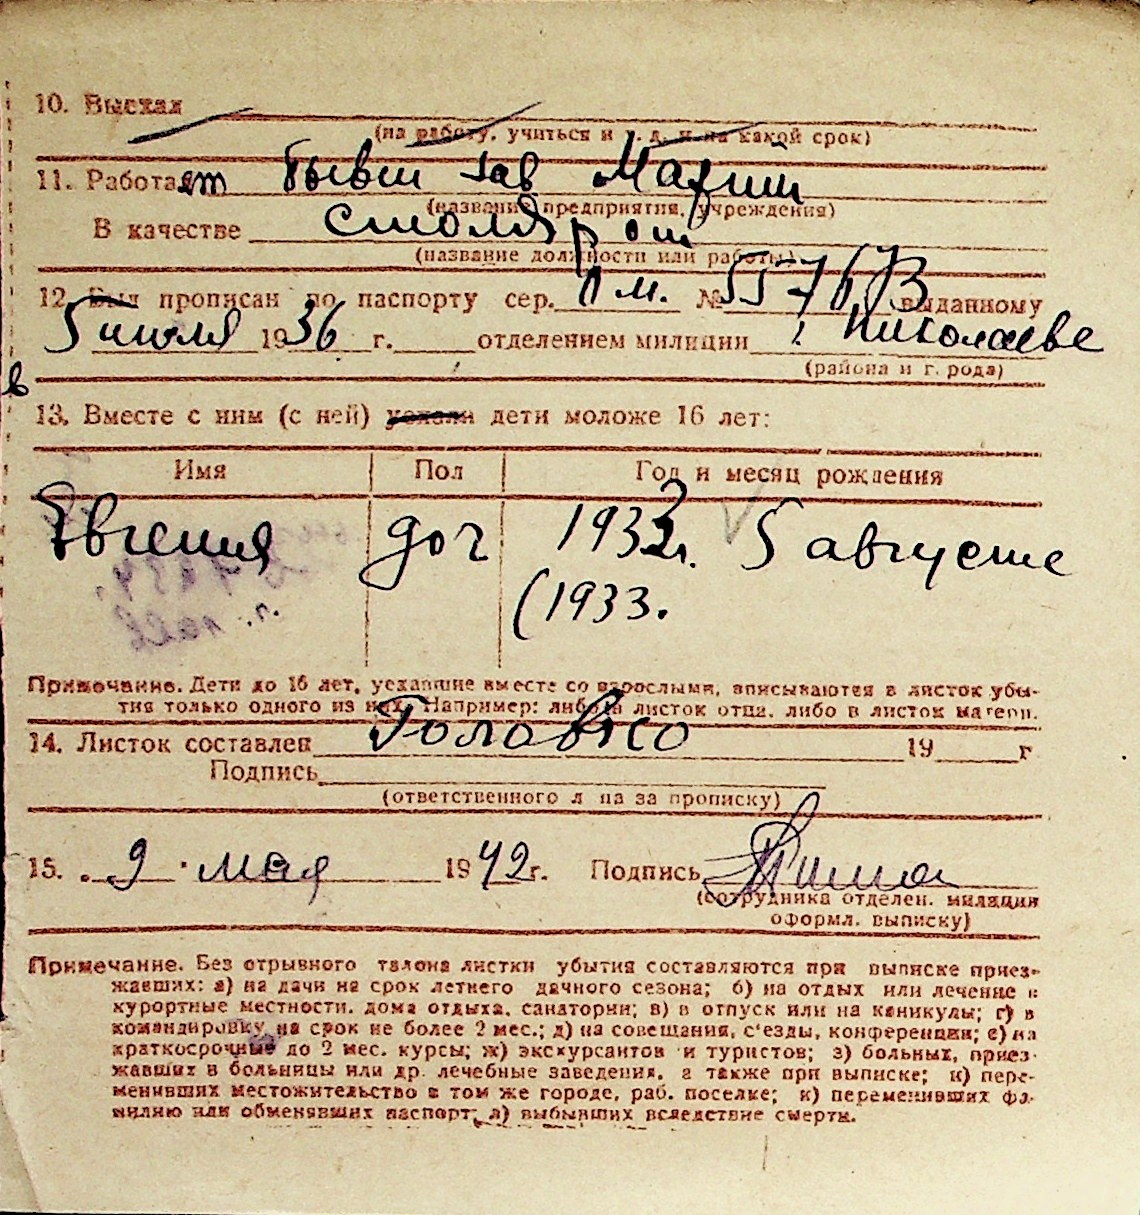 10. Выехал
(на работу, учиться и т. д. и на какой срок)
11. Работает Бывш зав Марти
(название предприятия, учреждения)
В качестве столяром
(название должности или работы)
12. Был прописан по паспорту сер. № выданному
5 июля 1936 г. отделением милиции г. Николаеве
(района и города)
в
13. Вместе с ним (с ней) уехали дети моложе 16 лет:
Имя Пол Год и месяц рождения
Евгения доч 1933 г. 5 августа
(1933.
Примечание. Дети до 16 лет, уехавшие вместе со взрослыми, вписываются в листок убы-
тия только одного из них. Например: либо в листок отца, либо в листок матери.
14. Листок составлен Головко 19 г
Подпись
(ответственного л на за прописку)
15. 2 мая 1942 г. Подпись
(сотрудника отделен. милиции
оформл. выписку)
Примечание. Без отрывного талона листки убытия составляются при выписке приез-
жавших: а) на дачи на срок летнего дачного сезона; б) на отдых или лечение в
курортные местности, дома отдыха, санатории; в) в отпуск или на каникулы; г) в
командировку на срок не более 2 мес.; д) на совещания, с'езды, конференции; е) на
краткосрочные до 2 мес. курсы; ж) экскурсантов и туристов; з) больных, приез-
жавших в больницы или др. лечебные заведения, а также при выписке; и) пере-
менивших местожительство в том же городе, раб. поселке; к) переменивших фа-
милию или обменявших паспорт; л) выбывших вследствие смерти.